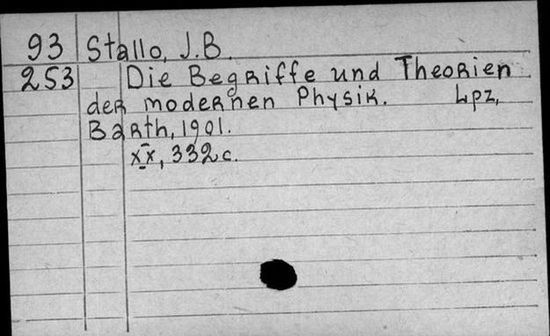 93 Stallo, J.B.
253 Die Begriffe und Theorien
der modernen Physik. Lpz,
Barth, 1901.
XX, 332 c.